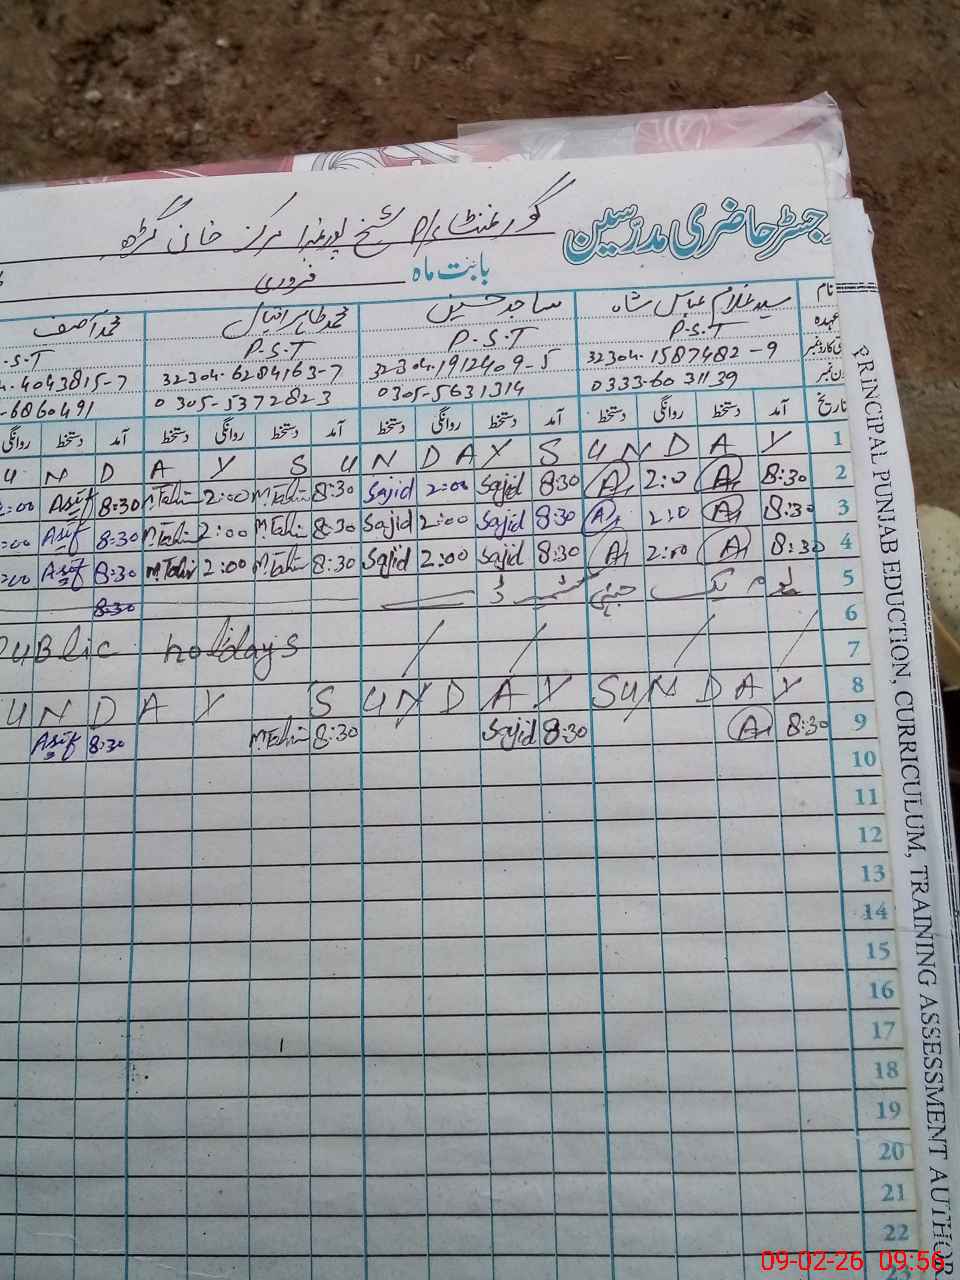 رجسٹر حاضری مدرسین گورنمنٹ
شیخ پور نمبر1 مرکز خان گڑھ
بابت ماہ فروری
نام سید غلام عباس شاہ ساجد حسین محمد طاہر اقبال محمد آصف
عہدہ P.S.T P.S.T P.S.T .S.T
32304-1587482-9 32-304-1912409-5 32-304-6284163-7 4-4043815-7
0333-6031139 0305-5631314 0305-5372823 -6860491
تاریخ آمد دستخط روانگی دستخط آمد دستخط روانگی دستخط آمد دستخط روانگی دستخط آمد دستخط روانگی
U N D A Y S U N D A Y S U N D A Y 1
2:00 Asif 8:30 M.Tahir 2:00 M.Tahir 8:30 Sajid 2:00 Sajid 8:30 A 2:0 A 8:30 2
:00 Asif 8:30 M.Tahir 2:00 M.Tahir 8:30 Sajid 2:00 Sajid 8:30 A 2:0 A 8:30 3
:00 Asif 8:30 M.Tahir 2:00 M.Tahir 8:30 Sajid 2:00 Sajid 8:30 A 2:00 A 8:30 4
یوم یکجہتی کشمیر ڈے 5
8:30
6
Public holidays 7
U N D A Y S U N D A Y S U N D A Y 8
Asif 8:30 M.Tahir 8:30 Sajid 8:30 A 8:30 9
10
11
12
13
14
15
16
17
18
19
20
21
22
23
PRINCIPAL PUNJAB EDUCTION, CURRICULUM, TRAINING ASSESSMENT AUTHOR
09-02-26 09:56